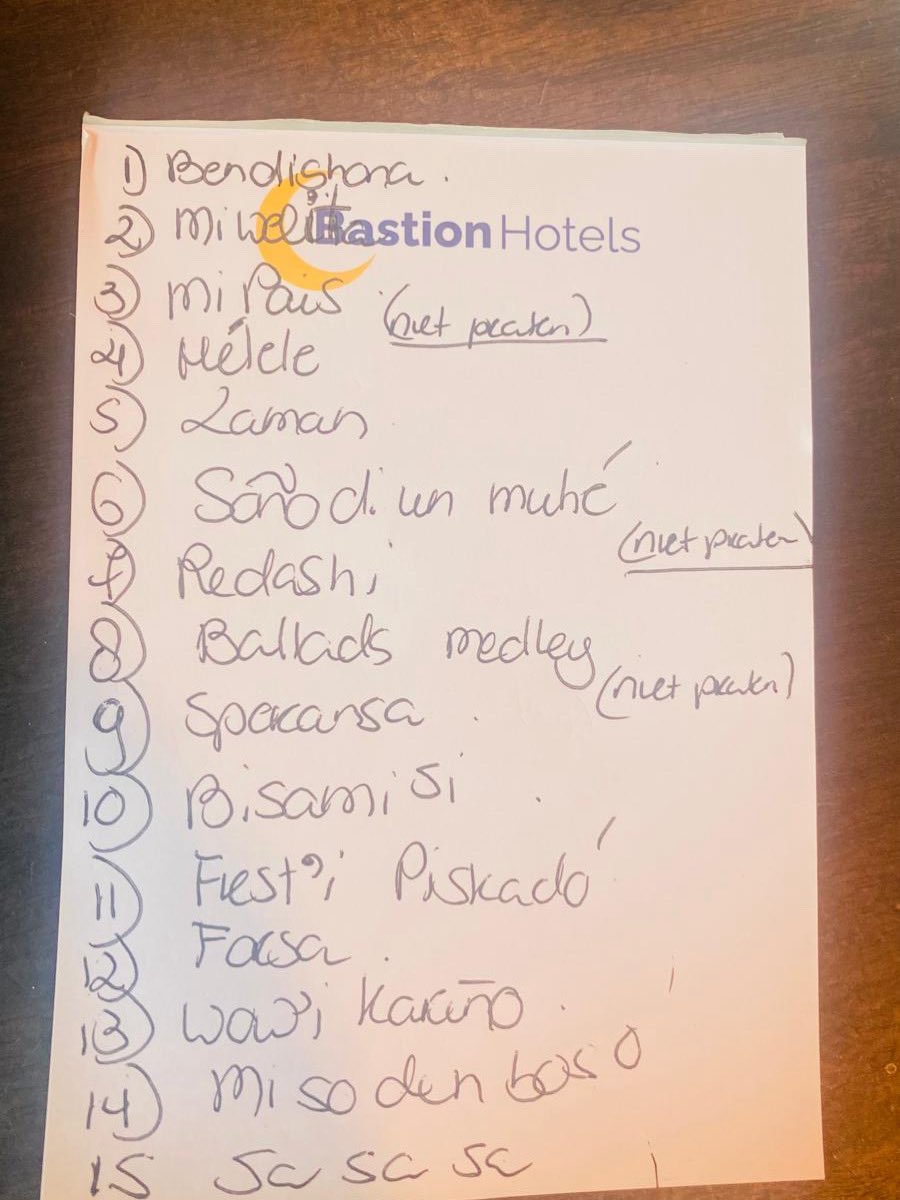 1) Bendishona.
Bastion Hotels
2) Mi welita
3) Mi Pais (niet praten)
4) Hélele
5) Zaman
6) Soño di un muhé
(niet praten)
7) Redashi
8) Ballads medley
(niet praten)
9) Speransa.
10) Bisami si
11) Fiest'i Piskadó
12) Forsa.
13) Wow'i Kariño
14) Mi so den bos ó
15 Sa sa sa